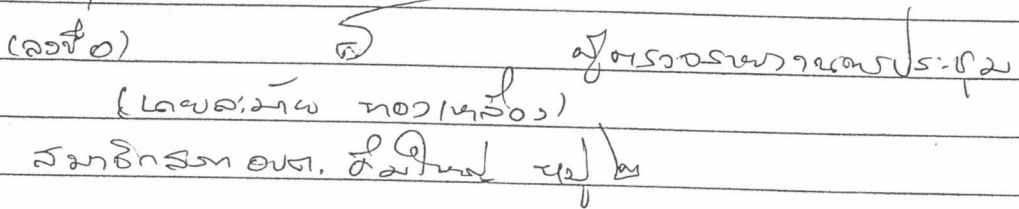 (ลงชื่อ) ผู้ตรวจรายงานการประชุม
(นายละม้าย ทองเหลือง)
สมาชิกสภา อบต. หมู่ ๒